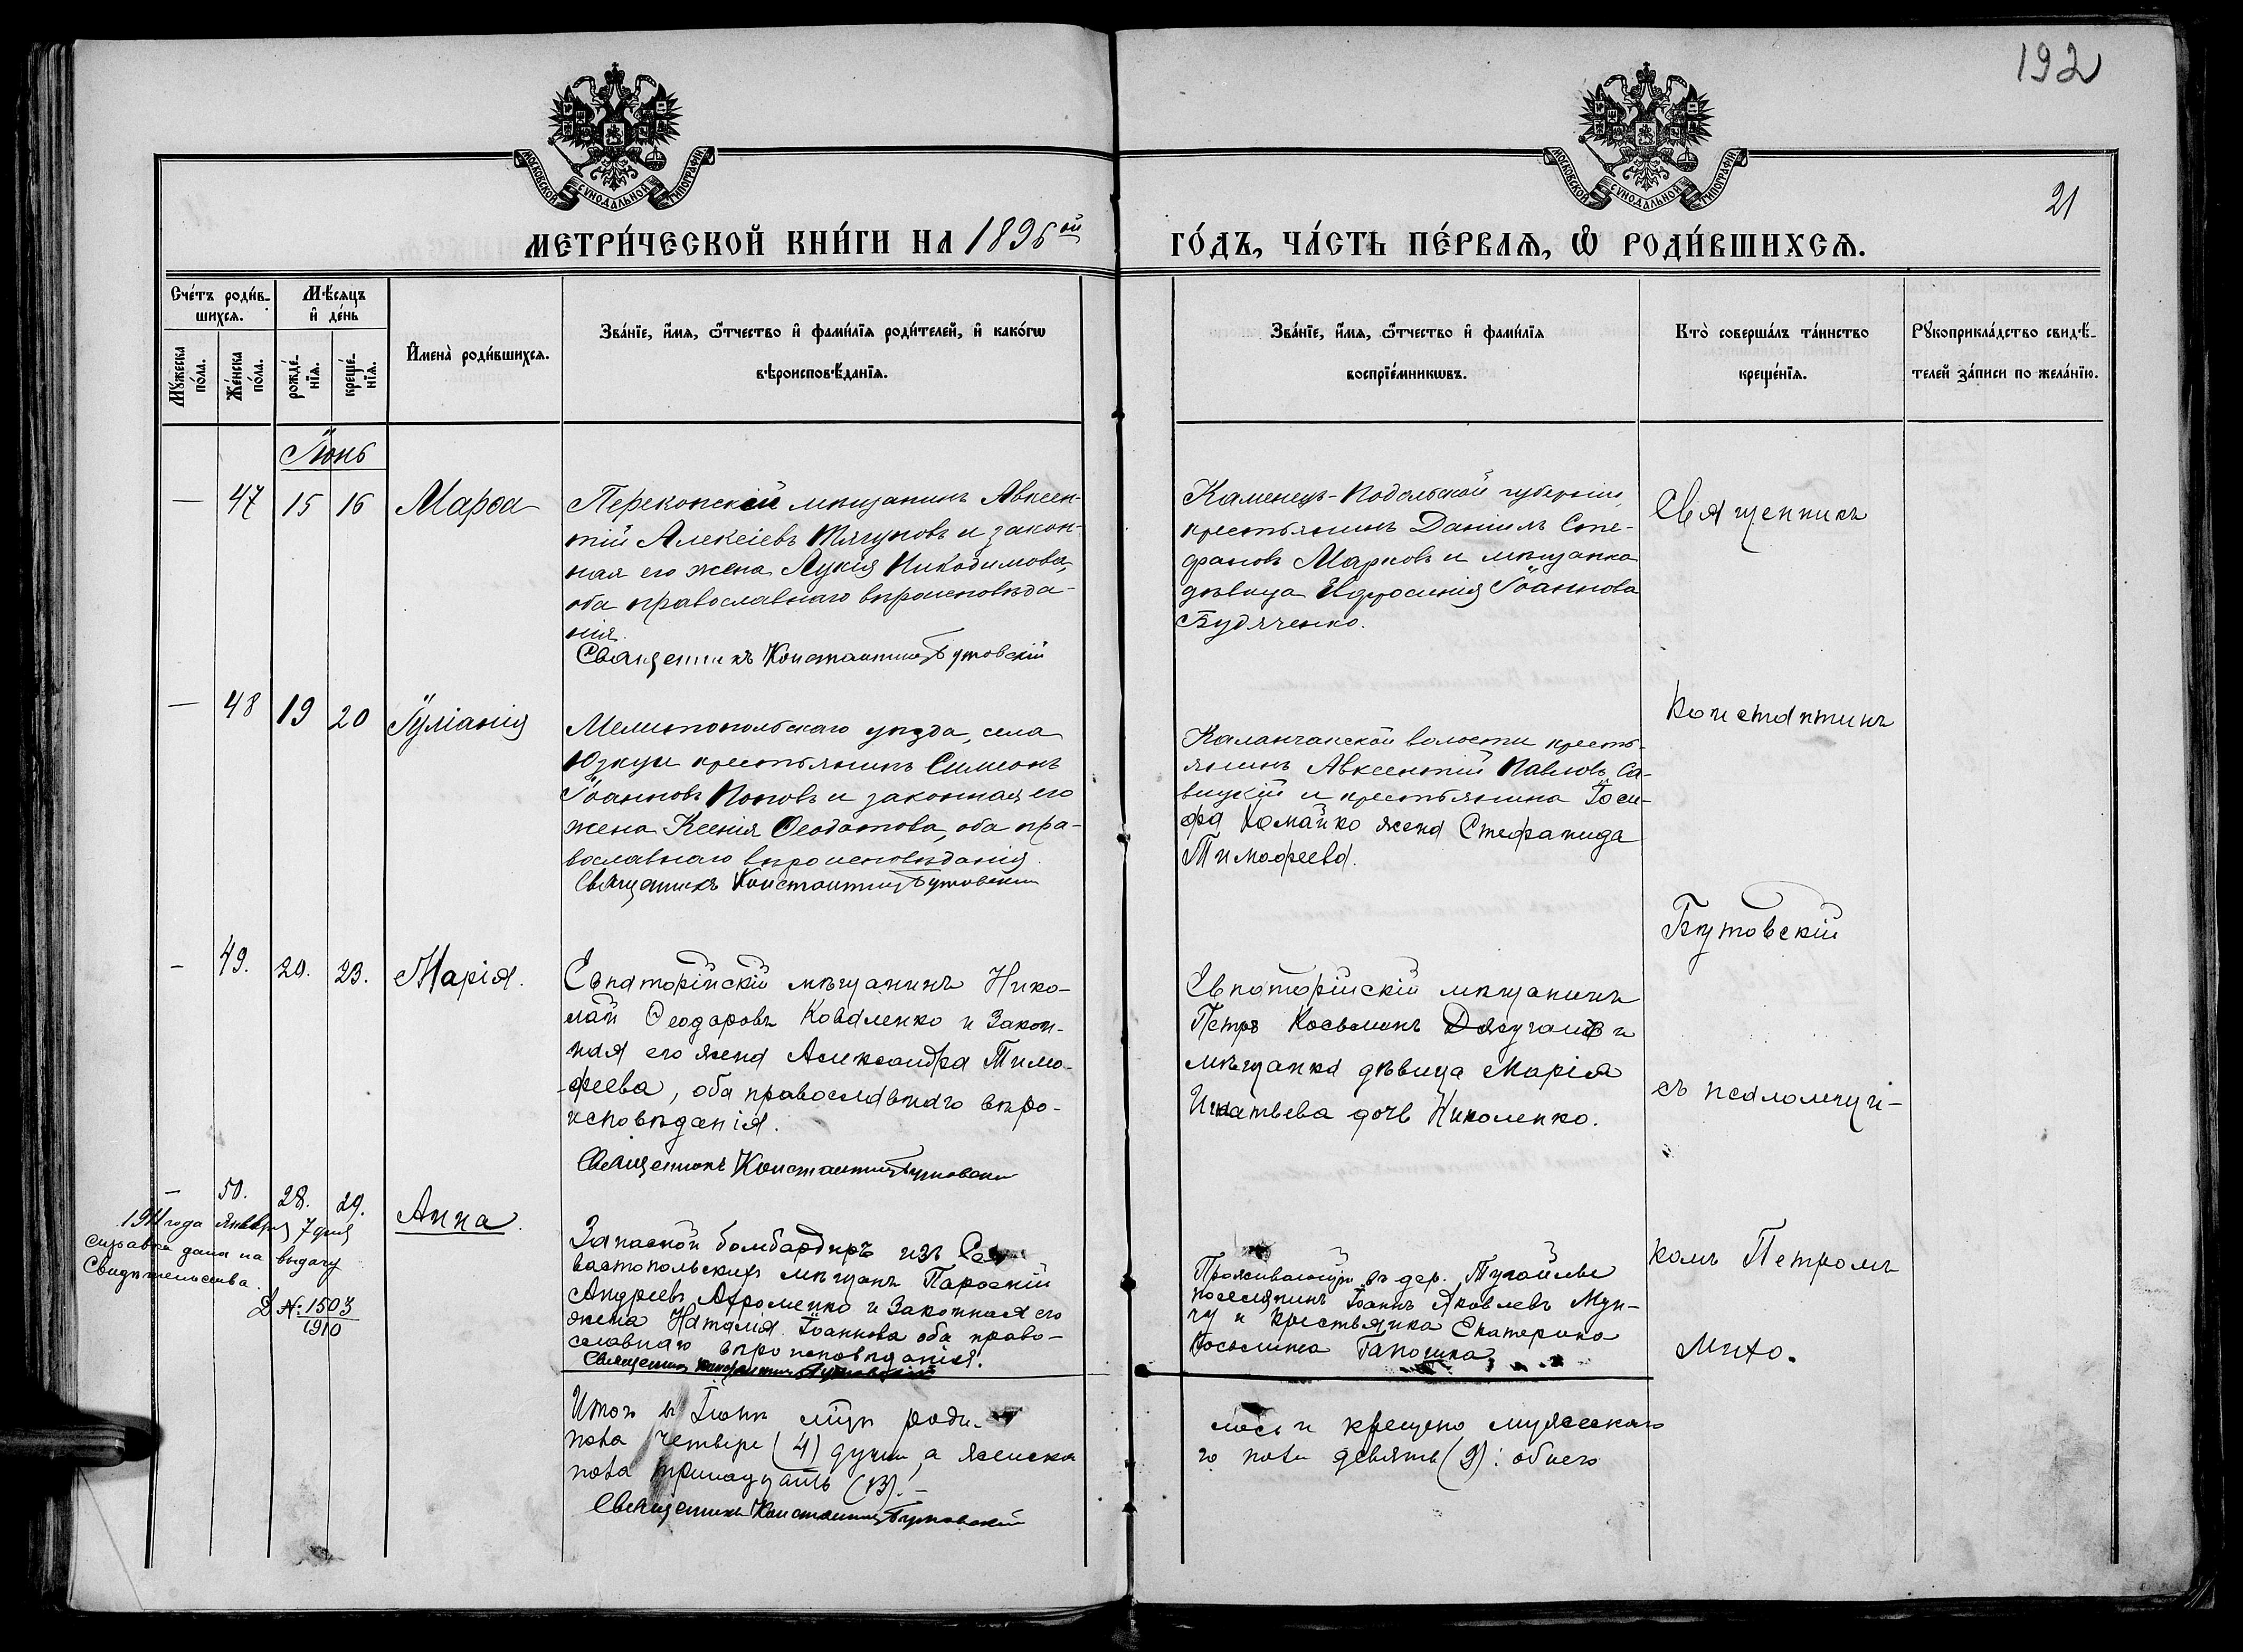 192
21
МОСКОВСКОЙ СѴНОДАЛЬНОЙ ТИПОГРАФІИ
МОСКОВСКОЙ СѴНОДАЛЬНОЙ ТИПОГРАФІИ
МЕТРИ́ЧЕСКОЙ КНИ́ГИ НА 1896ой
ГО́ДЪ, ЧА́СТЬ ПЕ́РВАѦ, Ѽ РОДИ́ВШИХСѦ.
Сче́тъ роди́в-
шихся.
Мѣсяцъ
и҆ де́нь
Мꙋ́жеска
по́ла.
Же́нска
по́ла.
рожде́-
нїя.
креще́-
нїя.
И҆мена̀ роди́вшихся.
Зва́нїе, и҆́мя, ѻ҆́тчество и҆ фами́лїя роди́телей, и҆ како́гѡ
вѣроисповѣ́данїя.
Зва́нїе, и҆́мя, ѻ҆́тчество и҆ фами́лїя
воспрїе́мникѡвъ.
Кто̀ соверша́лъ та́инство
креще́нїя.
Рꙋкоприкла́дство свидѣ́-
телей за́писи по жела́нїю.
Іюнь
— 47 15 16 Марѳа
Перекопскій мѣщанинъ Авксен-
тій Алексіевъ Тягуновъ и закон-
ная его жена Лукія Никодимова,
оба православнаго вѣроисповѣда-
нія.
Священникъ Константинъ Бутовскій
Каменецъ-Подольской губерніи,
крестьянинъ Даніилъ Сте-
фановъ Марковъ и мѣщанка
дѣвица Ефросинія Іоаннова
Будяченко.
Священникъ
— 48 19 20 Іуліанія
Мелитопольскаго уѣзда, села
Юзкуи крестьянинъ Симеонъ
Іоанновъ Поповъ и законная его
жена Ксенія Ѳеодотова, оба пра-
вославнаго вѣроисповѣданія.
Священникъ Константинъ Бутовскій
Каланчакской волости кресть-
янинъ Авксентій Павловъ Са-
вицкій и крестьянина Іоси-
фа жена Стефанида
Тимофеева.
Константинъ
Бутовскій
— 49. 20. 23. Марія.
Евпаторійскій мѣщанинъ Нико-
лай Ѳеодоровъ Коваленко и закон-
ная его жена Александра Тимо-
феева, оба православнаго вѣро-
исповѣданія.
Священникъ Константинъ Бутовскій
Евпаторійскій мѣщанинъ
Петръ Косьминъ и
мѣщанка дѣвица Марія
Игнатьева дочь Николенко.
съ псаломщи-
— 50. 28. 29. Анна.
1911 года Января 7 дня
справка дана на выдачу
Свидѣтельства.
Д №: 1503
1910
Запасной бомбардиръ изъ Се-
вастопольскихъ мѣщанъ Пароеній
Андреевъ Афроменко и законная его
жена Наталія Іоаннова оба право-
славнаго вѣроисповѣданія.
Священникъ Константинъ Бутовскій
Проживающій въ дер.
поселянинъ Іоаннъ Яковлевъ Мун-
чу и крестьянка Екатерина
Косьмина
комъ Петромъ
Михо.
Итого въ Іюнѣ мцѣ роди-
лось и крещено мужескаго
пола четыре (4) души, а женска
го пола девять (9): обоего
пола тринадцать (13).—
Священникъ Константинъ Бутовскій